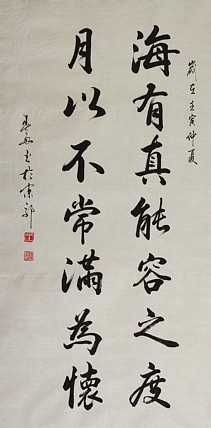 歲在壬寅仲夏
海有真能容之度
月以不常滿為懷